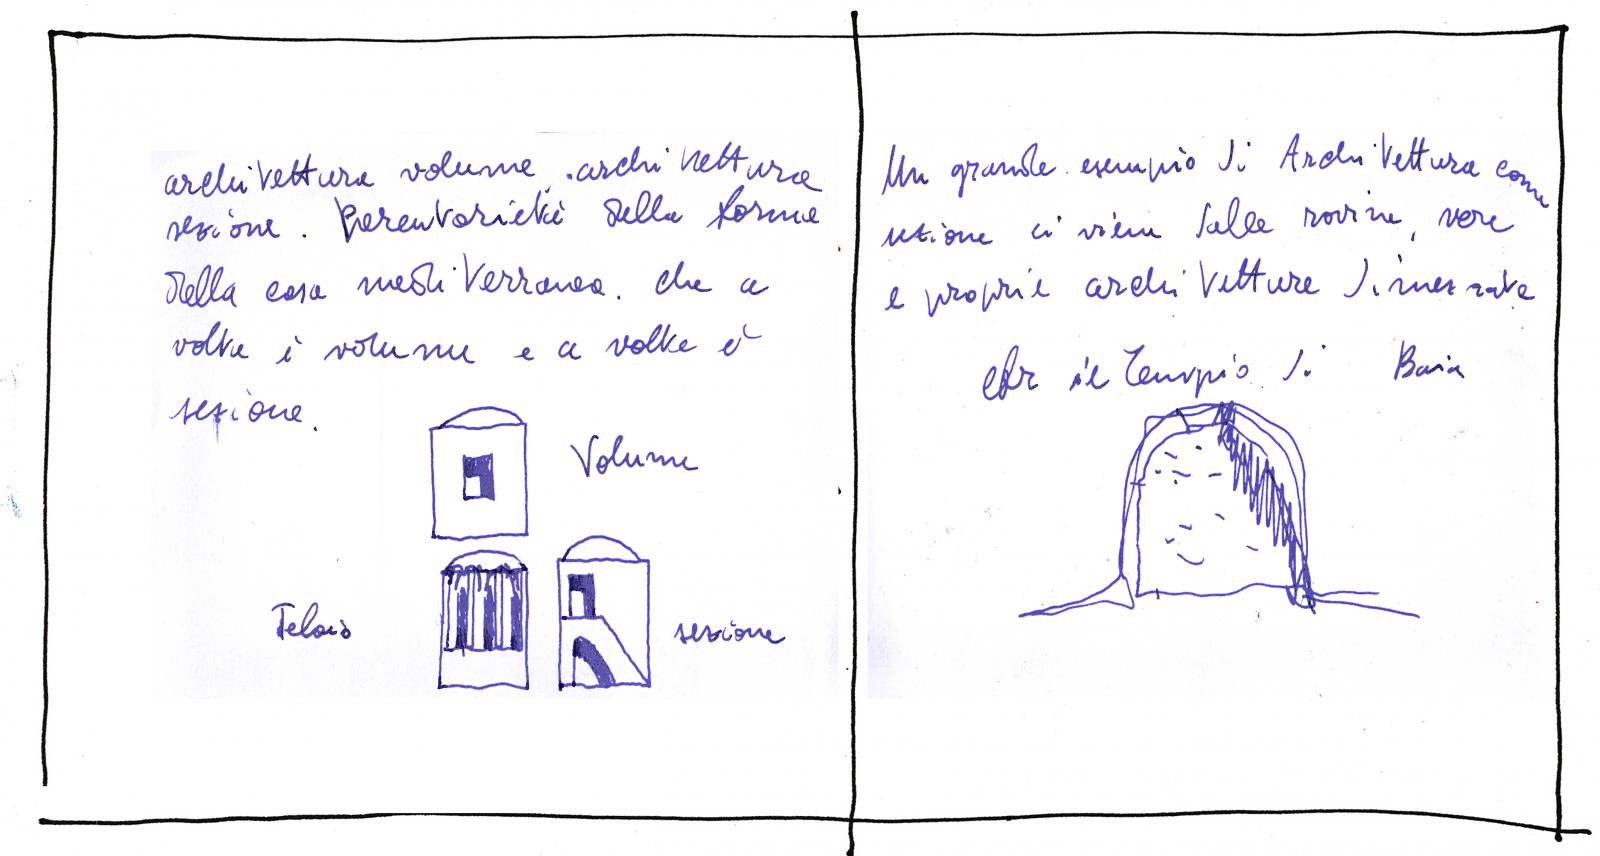 architettura volume. architettura
sezione. Perentorietà della forma
della casa mediterranea. che a
volte è volume e a volte è
sezione.
Volume
Telaio
sezione
Un grande esempio di Architettura come
sezione ci viene dalle rovine, vere
e proprie architetture dimezzate
il Tempio di Baia